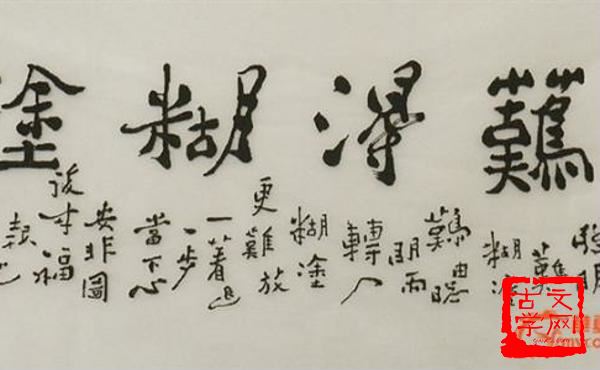 難得糊塗
聰明
難
糊塗
難由聰
明而
轉入
糊塗
更難放
一著退
一步
當下心
安非圖
後来福
報也
古文
学网